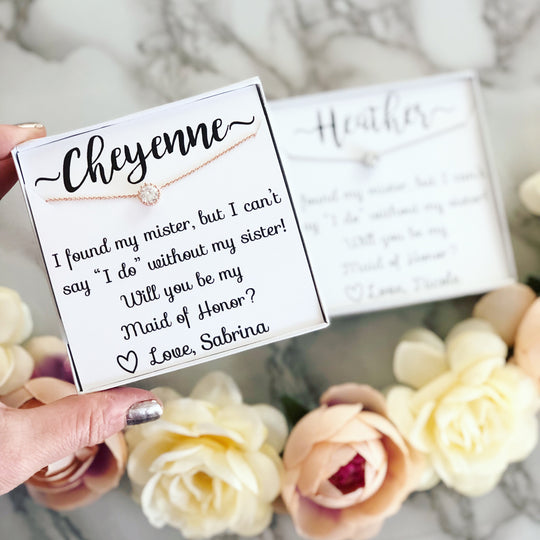 ~Cheyenne~
I found my mister, but I can't
say "I do" without my sister!
Will you be my
Maid of Honor?
♡ Love, Sabrina
~Heather~
found my mister, but I can't
say "I do" without my sister
Will you be my
Maid of Honor?
♡ Love, Nicole